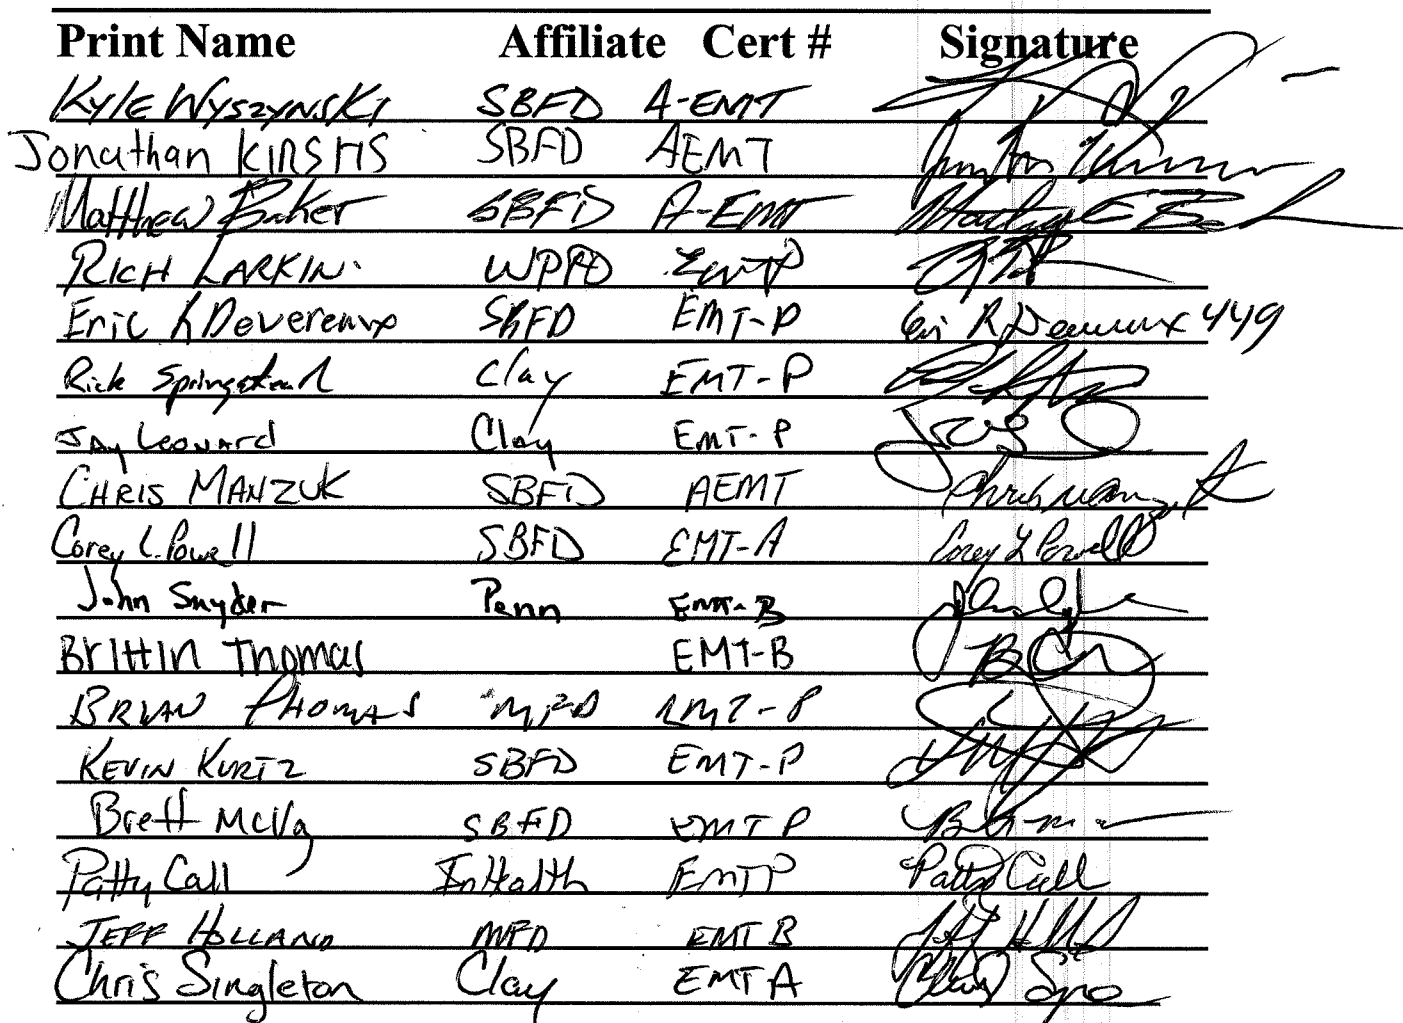 Print Name Affiliate Cert # Signature
Kyle Wyszynski SBFD A-EMT
Jonathan Kirsits SBFD AEMT
Matthew Baker SBFD A-EMT
Rich Larkin WPFD EMTP
Eric R Devereaux SBFD EMT-P Eri R Devereux 449
Rick Springstead Clay EMT-P
Jay Leonard Clay EMT-P
Chris Manzuk SBFD AEMT Chris Manzuk
Corey L. Powell SBFD EMT-A Corey L Powell
John Snyder Penn EMT-B
Brittin Thomas EMT-B
Brian Thomas MFD EMT-P
Kevin Kurtz SBFD EMT-P
Brett McVay SBFD EMT P
Patty Call InHealth EMTP Patty Call
Jeff Holland MFD EMT B
Chris Singleton Clay EMT A